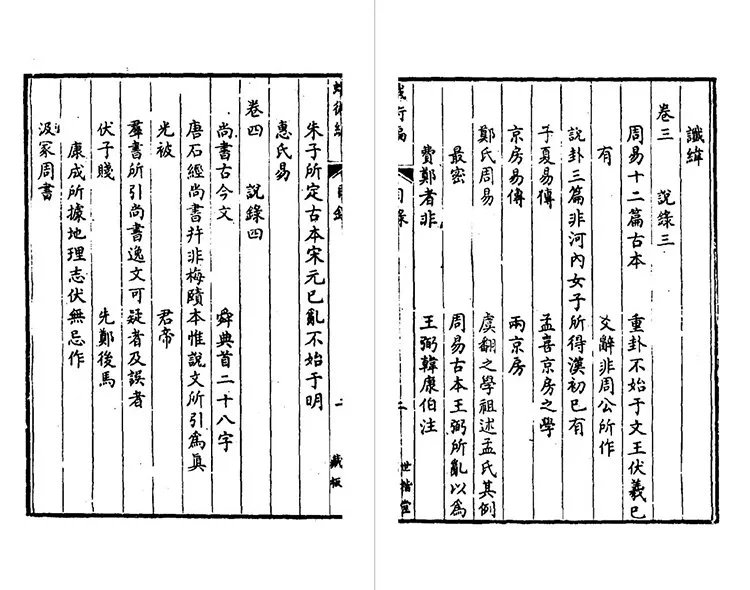 讖緯
卷三 說錄三
周易十二篇古本 重卦不始于文王伏羲已
有 爻辭非周公所作
說卦三篇非河內女子所得漢初已有
子夏易傳 孟喜京房之學
京房易傳 兩京房
鄭氏周易 虞翻之學祖述孟氏其例
最密 周易古本王弼所亂以為
費鄭者非 王弼韓康伯注
蛾術編 目錄 二 世楷堂
蛾術編 目錄 二 藏板
朱子所定古本宋元已亂不始于明
惠氏易
卷四 說錄四
尚書古今文 舜典首二十八字
唐石經尚書并非梅賾本惟說文所引為真
光被 君帝
羣書所引尚書逸文可疑者及誤者
伏子賤 先鄭後馬
康成所據地理志伏無忌作
汲冢周書